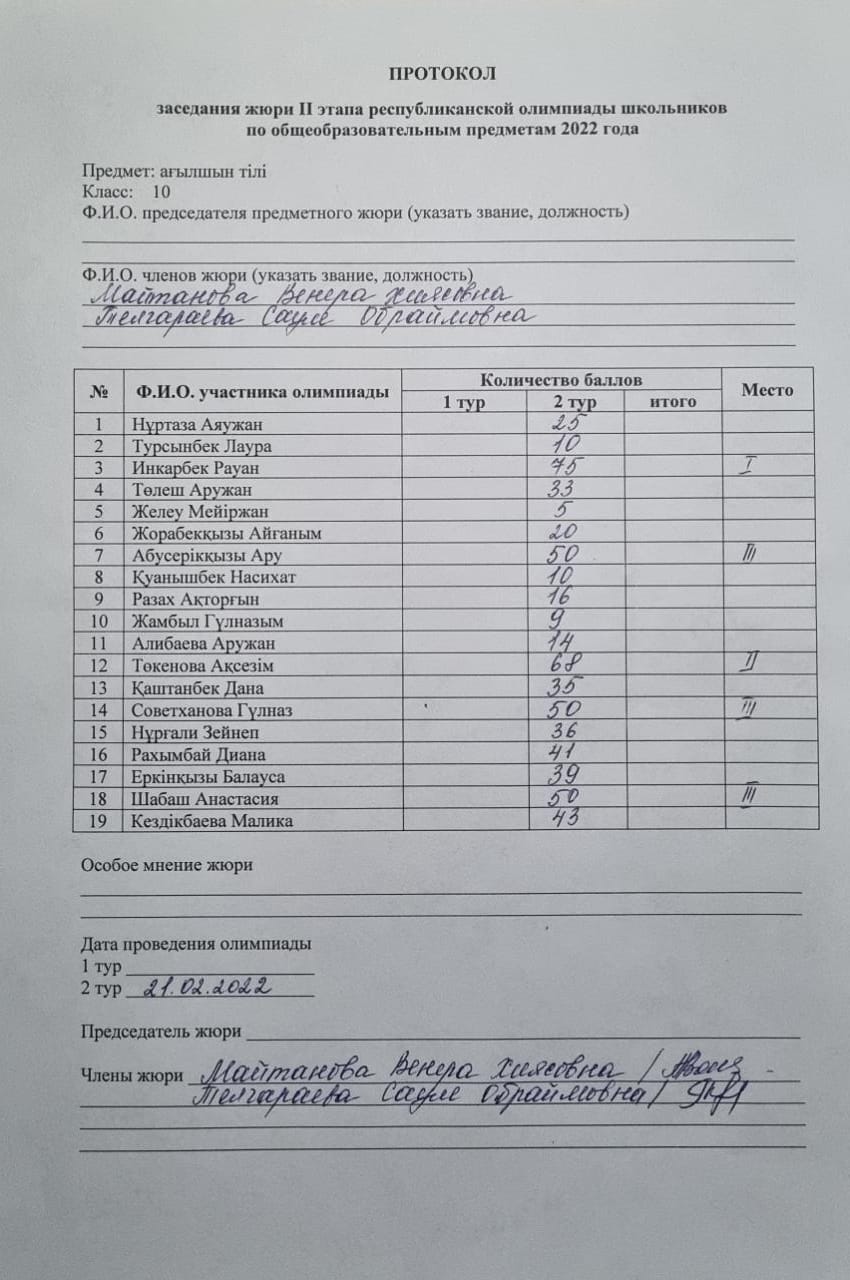 ПРОТОКОЛ
заседания жюри II этапа республиканской олимпиады школьников
по общеобразовательным предметам 2022 года
Предмет: ағылшын тілі
Класс: 10
Ф.И.О. председателя предметного жюри (указать звание, должность)
Ф.И.О. членов жюри (указать звание, должность)
Майтанова Венера Хиясовна
Телгараева Сауле Обраймовна
№ Ф.И.О. участника олимпиады Количество баллов Место
1 тур 2 тур итого
1 Нұртаза Аяужан 25
2 Турсынбек Лаура 10
3 Инкарбек Рауан 75 I
4 Төлеш Аружан 33
5 Желеу Мейіржан 5
6 Жорабекқызы Айғаным 20
7 Абусерікқызы Ару 50 III
8 Қуанышбек Насихат 10
9 Разах Ақторғын 16
10 Жамбыл Гүлназым 9
11 Алибаева Аружан 14
12 Төкенова Ақсезім 68 II
13 Қаштанбек Дана 35
14 Советханова Гүлназ 50 III
15 Нұрғали Зейнеп 36
16 Рахымбай Диана 41
17 Еркінқызы Балауса 39
18 Шабаш Анастасия 50 III
19 Кездікбаева Малика 43
Особое мнение жюри
Дата проведения олимпиады
1 тур
2 тур 21.02.2022
Председатель жюри
Члены жюри Майтанова Венера Хиясовна /
Телгараева Сауле Обраймовна /